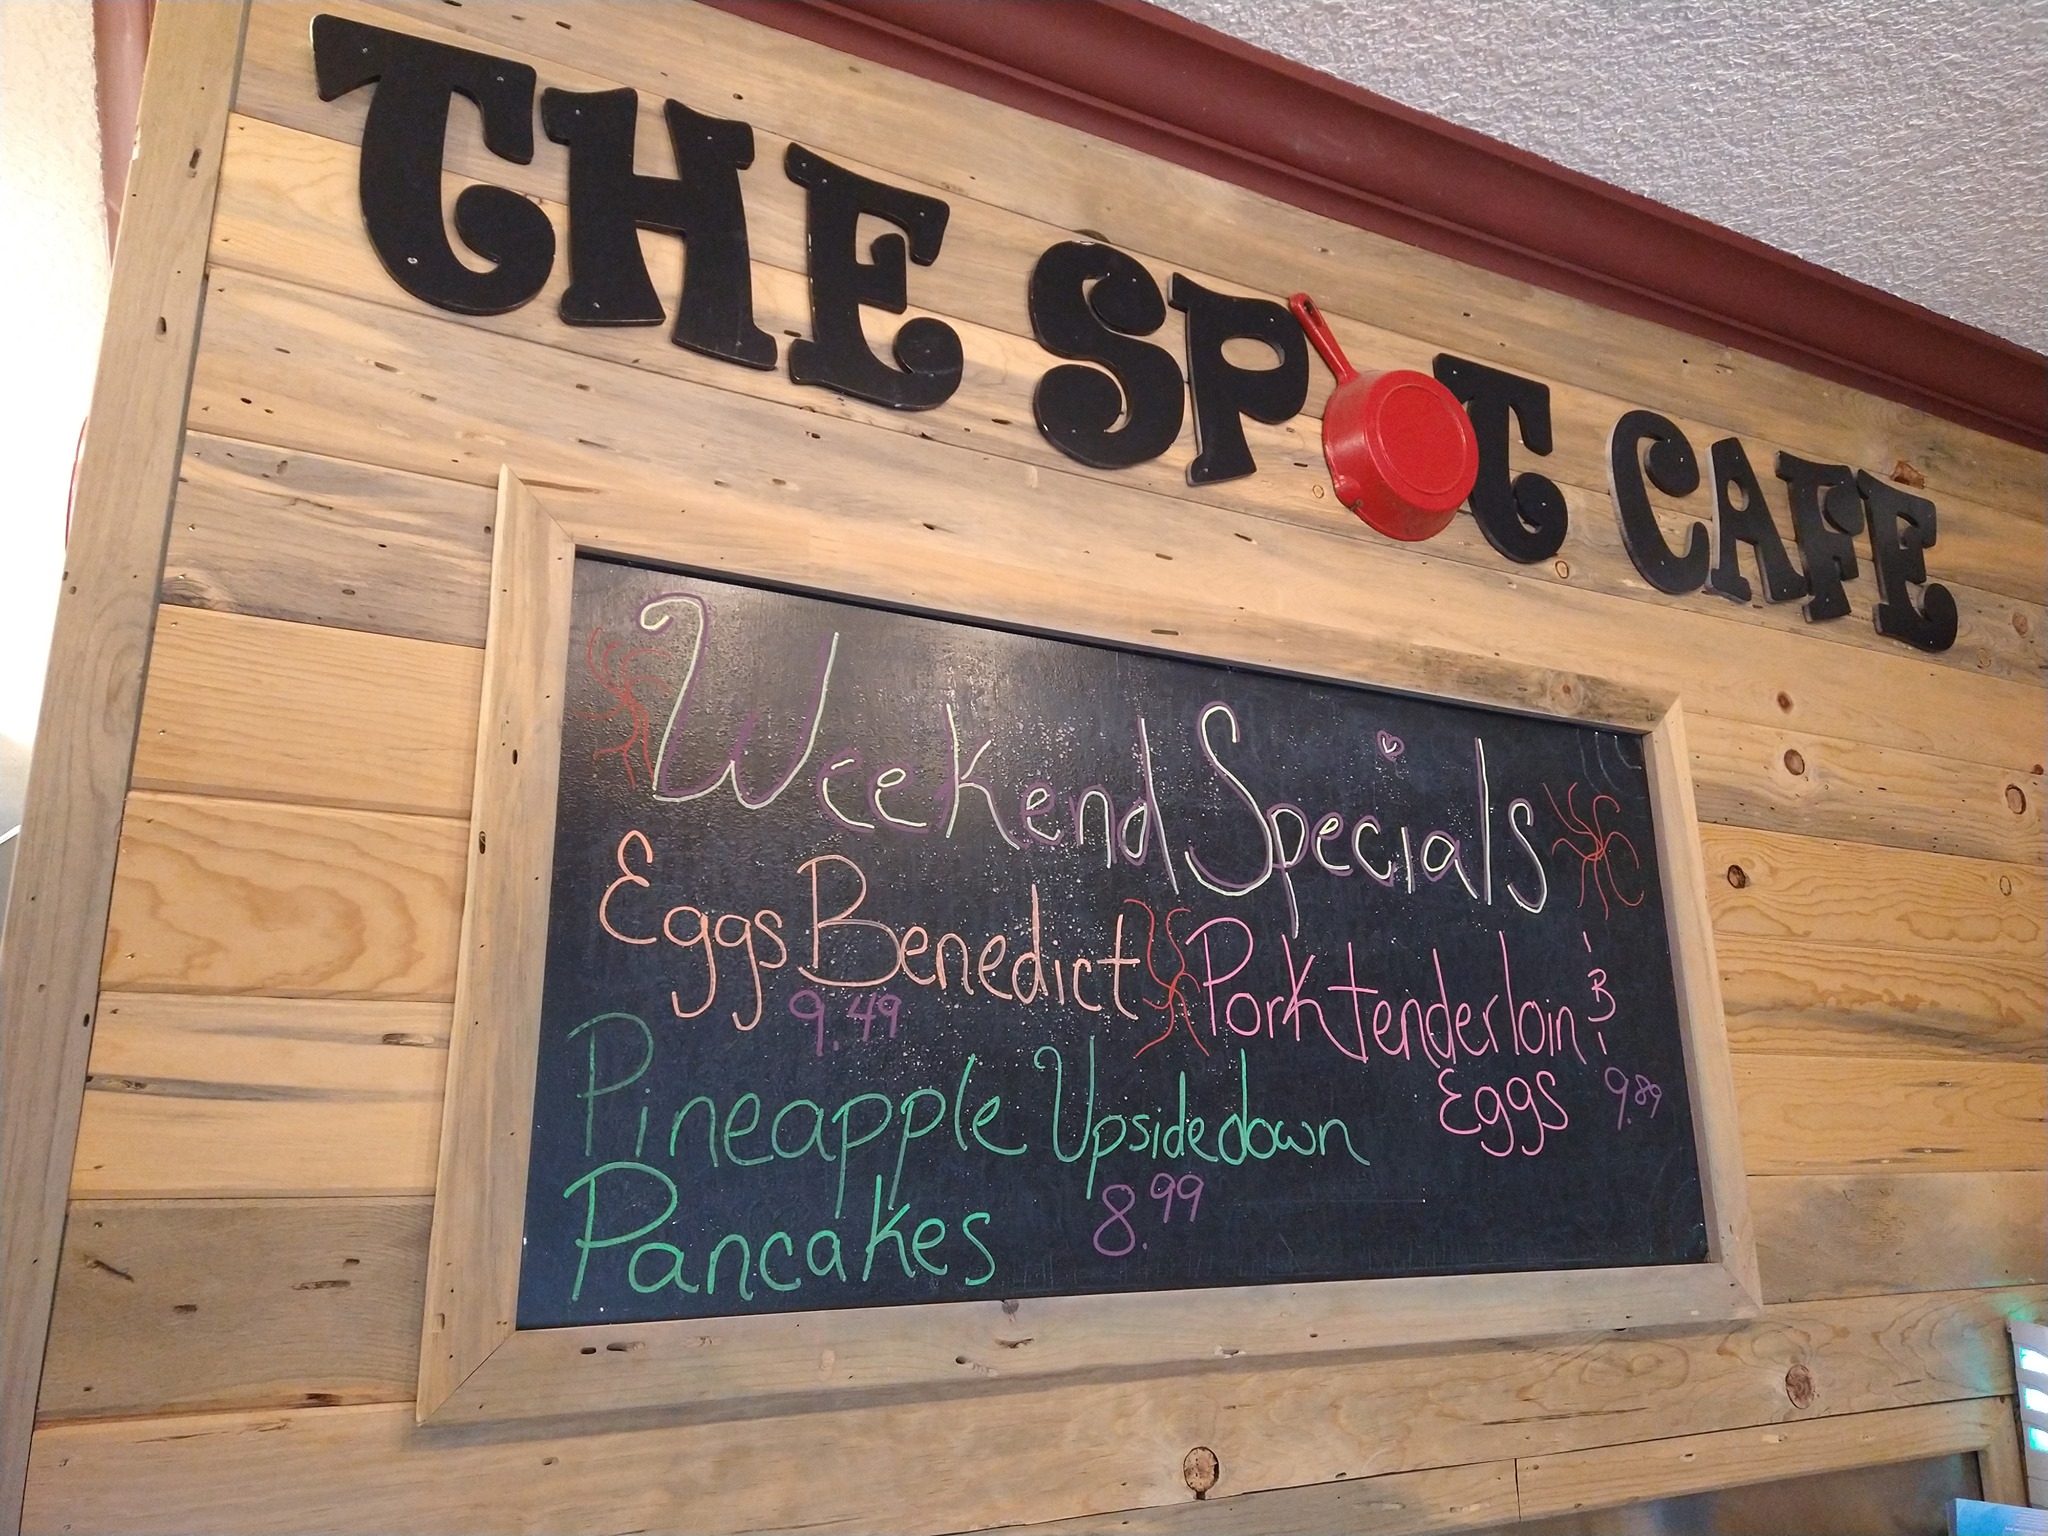 THE SPOT CAFE
Weekend Specials
Eggs Benedict
9.49
Pork tenderloin &
Eggs 9.89
Pineapple Upsidedown
Pancakes 8.99